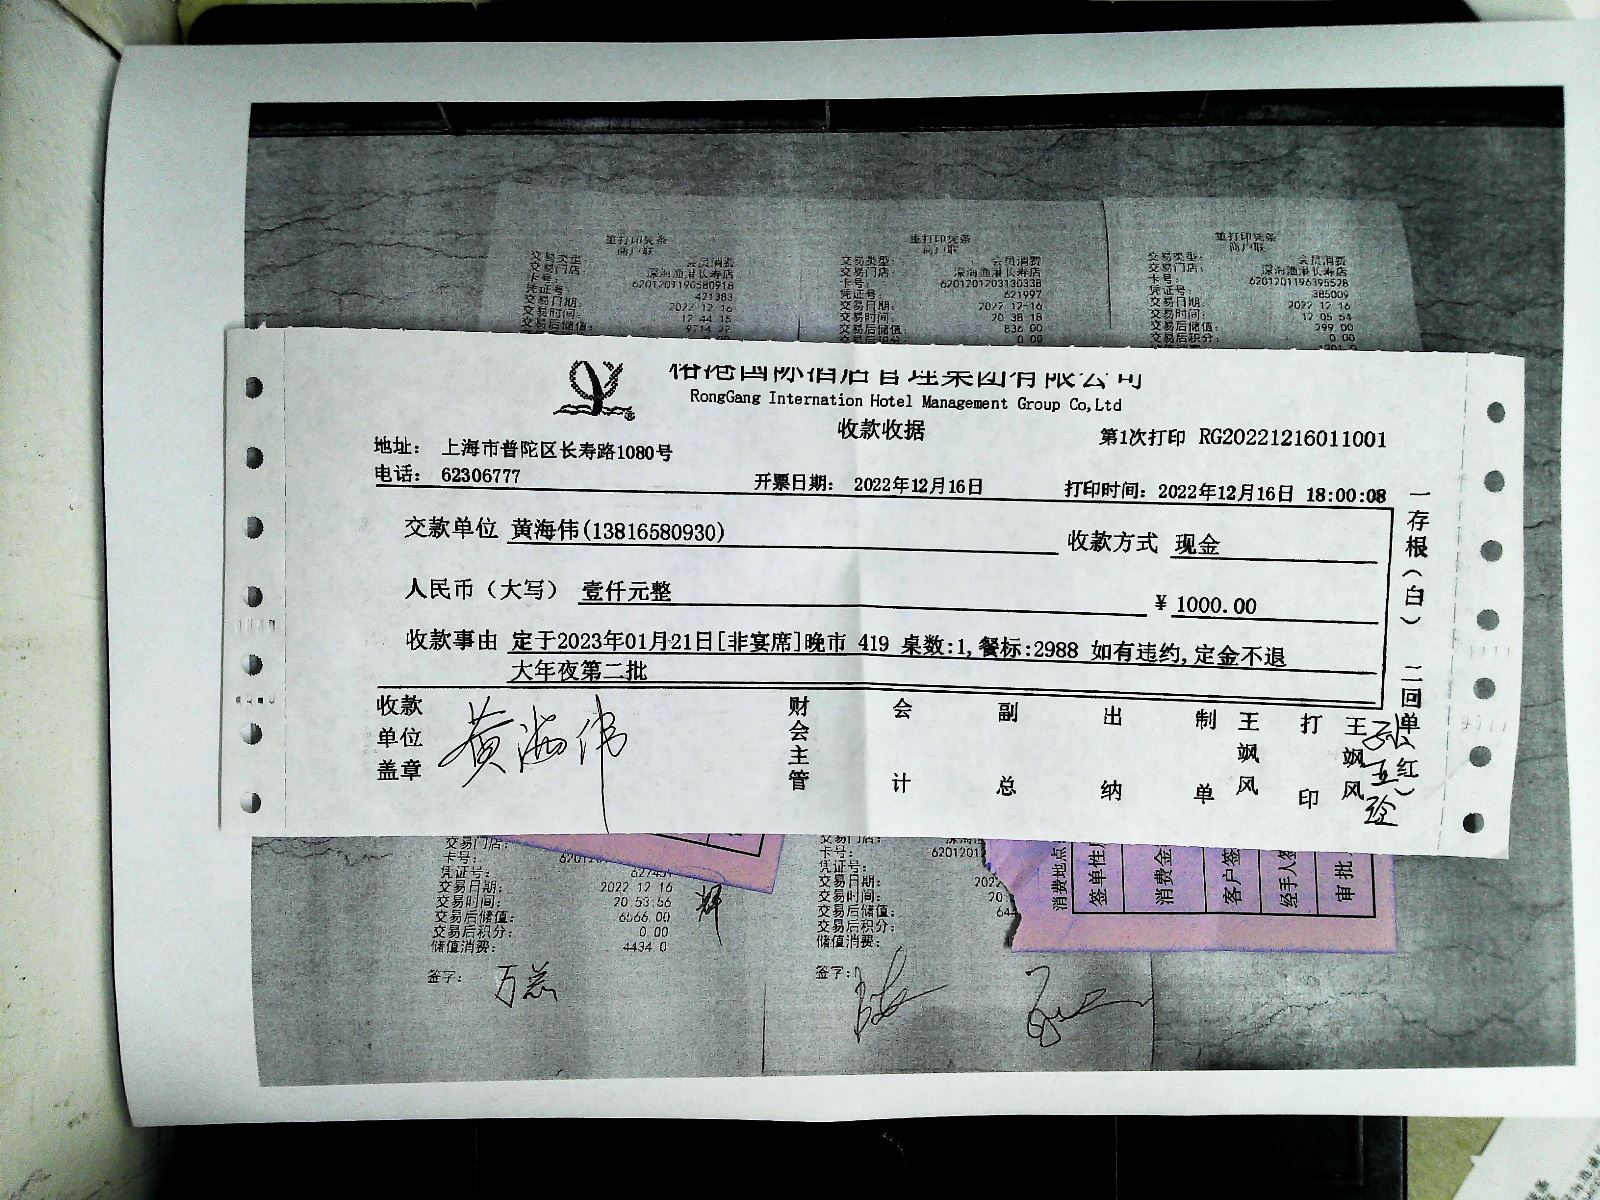 重打印凭条
商户联
交易类型: 会员消费
交易门店: 深海渔港长寿店
卡号: 6201201190580918
凭证号: 421383
交易日期: 2022 12 16
交易时间: 12 44 15
交易后储值:
重打印凭条
商户联
交易类型: 会员消费
交易门店: 深海渔港长寿店
卡号: 6201201203130338
凭证号: 621997
交易日期: 2022 12 16
交易时间: 20 38 18
交易后储值: 836 00
交易后积分: 0 00
重打印凭条
商户联
交易类型: 会员消费
交易门店: 深海渔港长寿店
卡号: 6201201196395528
凭证号: 385009
交易日期: 2022 12 16
交易时间: 12 05 54
交易后储值: 299 00
交易后积分: 0.00
榕港国际酒店管理集团有限公司
RongGang Internation Hotel Management Group Co,Ltd
收款收据
第1次打印 RG20221216011001
地址: 上海市普陀区长寿路1080号
电话: 62306777
开票日期: 2022年12月16日
打印时间: 2022年12月16日 18:00:08
交款单位 黄海伟(13816580930) 收款方式 现金
人民币(大写) 壹仟元整 ¥ 1000.00
收款事由 定于2023年01月21日[非宴席]晚市 419 桌数:1,餐标:2988 如有违约,定金不退
大年夜第二批
收款单位盖章 黄海伟 财会主管 会计 副总 出纳 制单 王飒风 打印 王飒风
一存根(白) 二回单(红)
交易门店:
卡号:
凭证号:
交易日期: 2022 12 16
交易时间: 20 53:56
交易后储值: 6566.00
交易后积分: 0.00
储值消费: 4434 0
签字:
交易门店:
卡号: 6201201
凭证号:
交易日期: 2022
交易时间: 20
交易后储值:
交易后积分:
储值消费:
签字:
消费地点
签单性
消费金
客户签
经手人签
审批